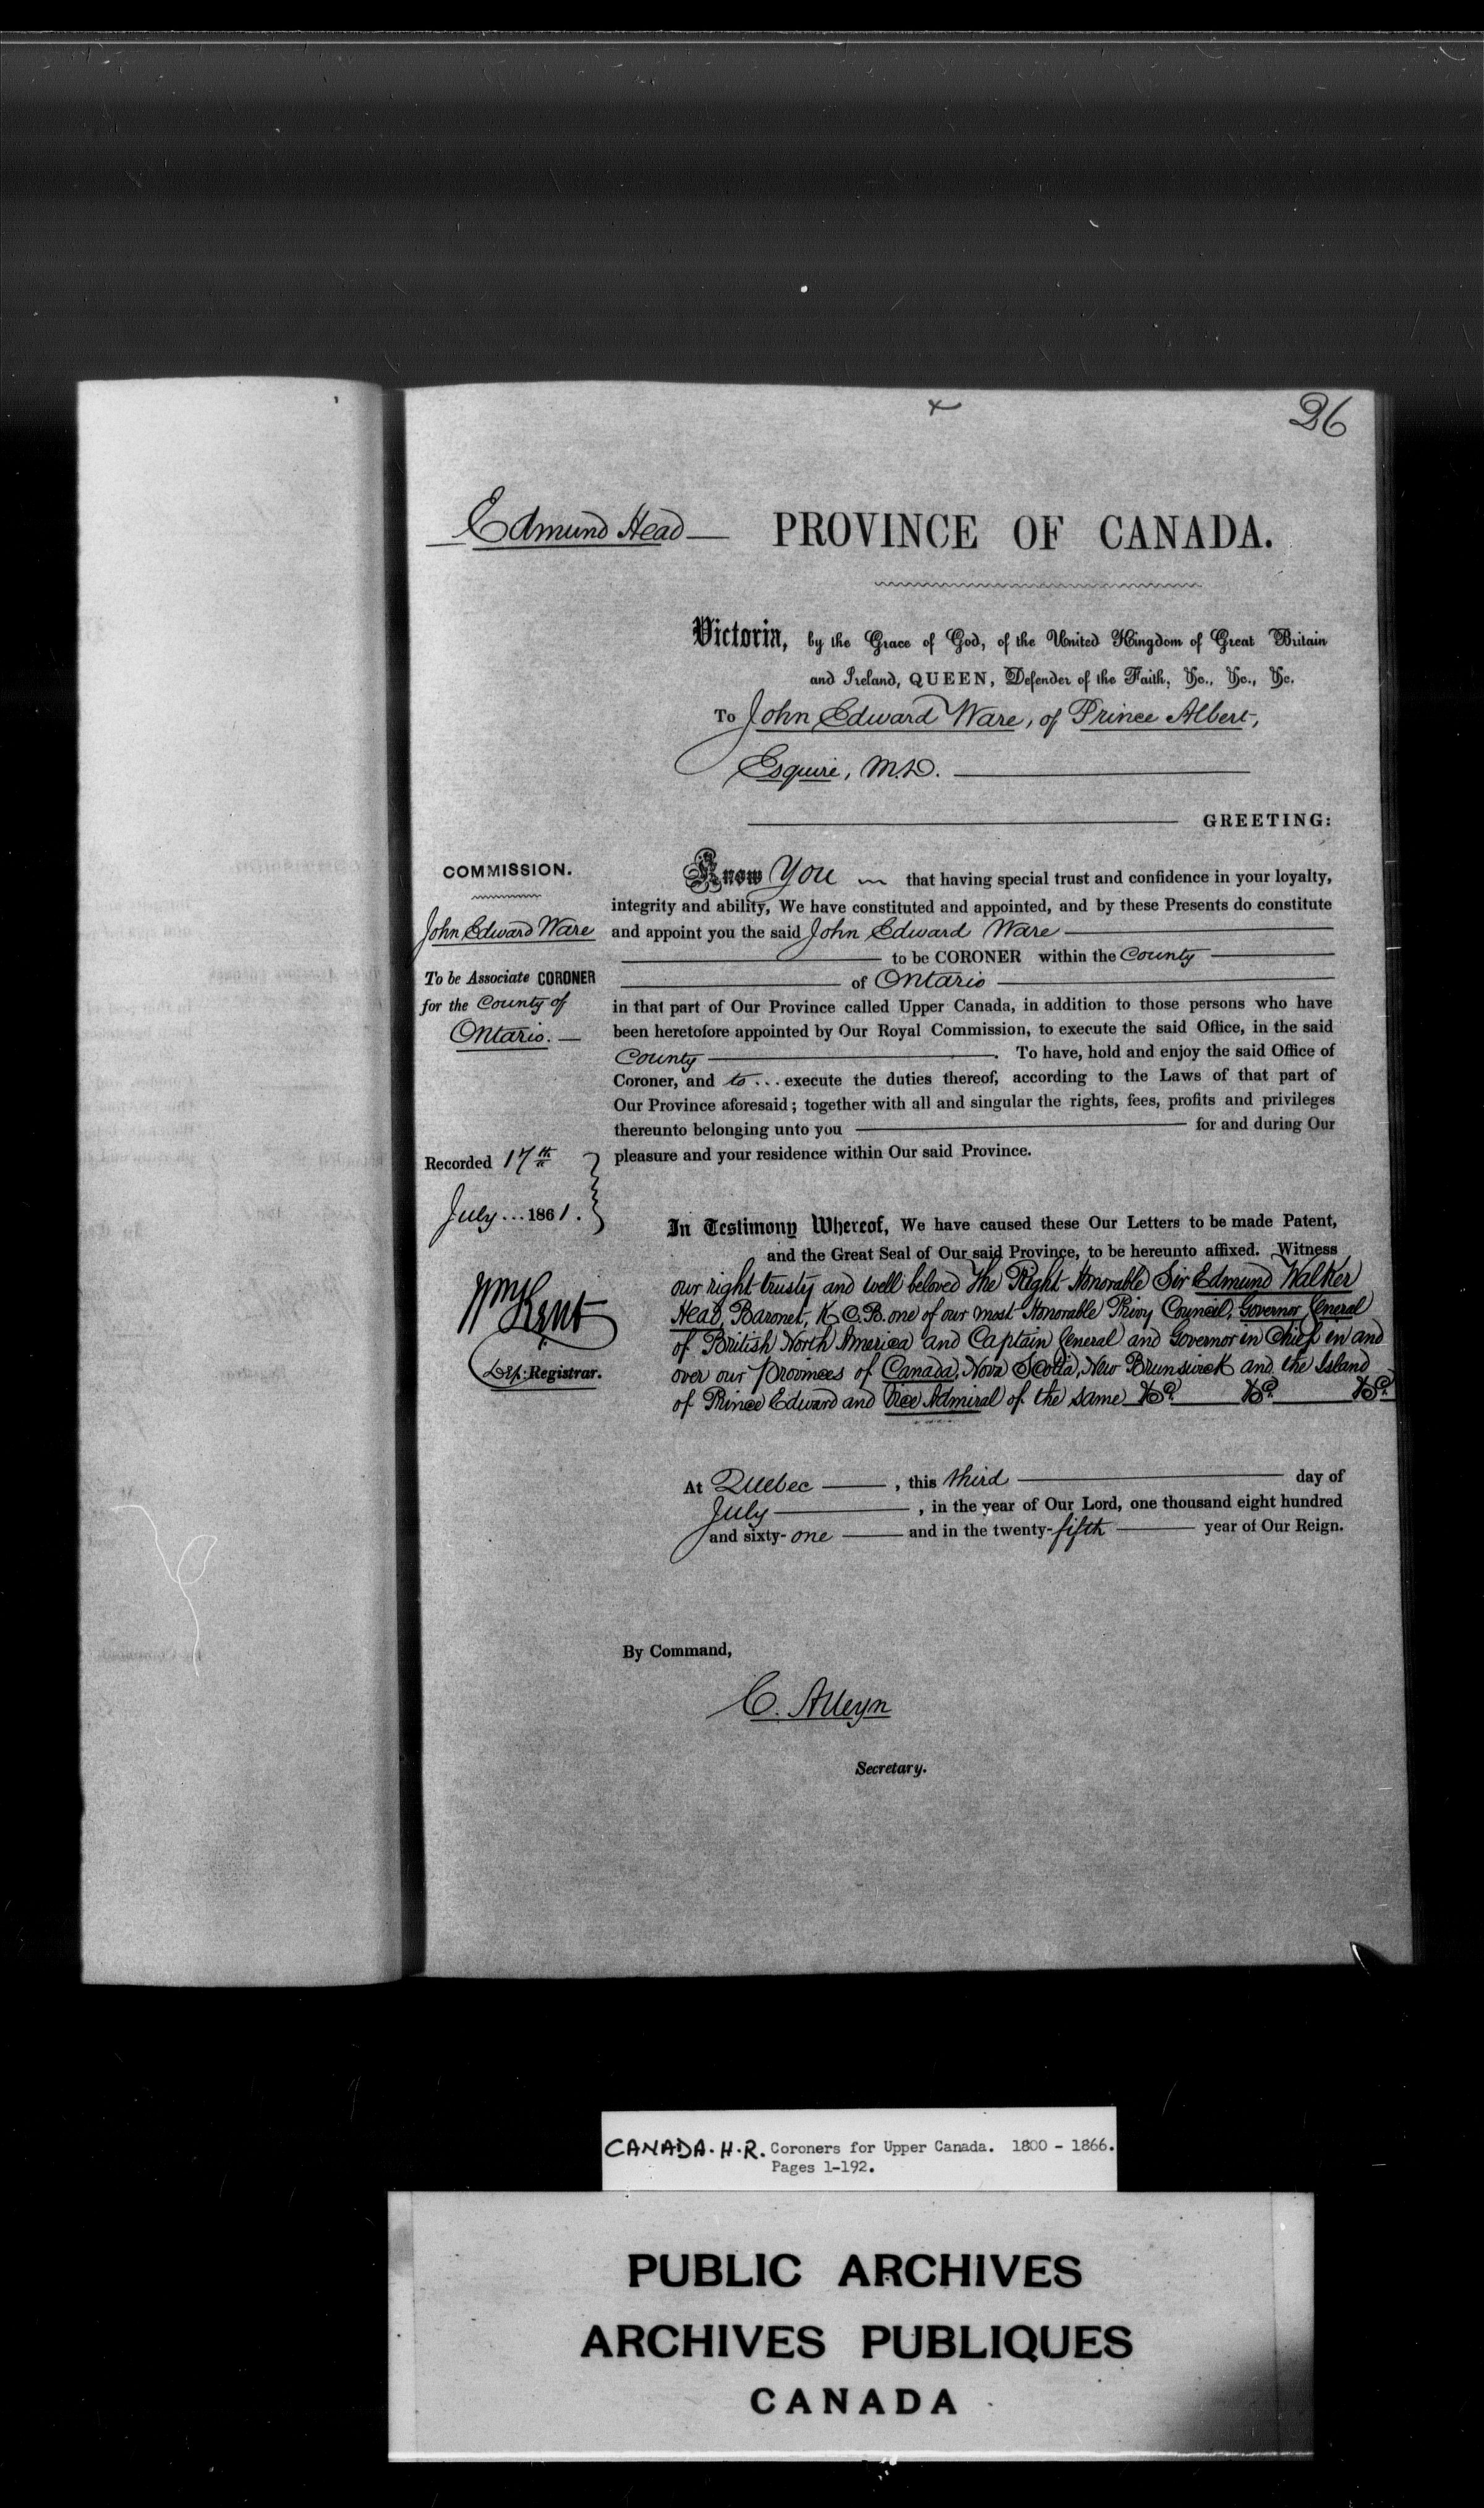 26
Edmund Head PROVINCE OF CANADA.
Victoria, by the Grace of God, of the United Kingdom of Great Britain
and Ireland, QUEEN, Defender of the Faith, &c., &c., &c.
To John Edward Ware, of Prince Albert,
Esquire, M.D.
GREETING:
COMMISSION.
John Edward Ware
To be Associate CORONER
for the County of
Ontario.
Recorded 17th
July ... 1861.
Wm Kent
Dep: Registrar.
Know You that having special trust and confidence in your loyalty,
integrity and ability, We have constituted and appointed, and by these Presents do constitute
and appoint you the said John Edward Ware
to be CORONER within the County
of Ontario
in that part of Our Province called Upper Canada, in addition to those persons who have
been heretofore appointed by Our Royal Commission, to execute the said Office, in the said
County . To have, hold and enjoy the said Office of
Coroner, and to ... execute the duties thereof, according to the Laws of that part of
Our Province aforesaid; together with all and singular the rights, fees, profits and privileges
thereunto belonging unto you for and during Our
pleasure and your residence within Our said Province.
In Testimony Whereof, We have caused these Our Letters to be made Patent,
and the Great Seal of Our said Province, to be hereunto affixed. Witness
our right trusty and well beloved The Right Honorable Sir Edmund Walker
Head, Baronet, K.C.B. one of our most Honorable Privy Council, Governor General
of British North America and Captain General and Governor in Chief in and
over our provinces of Canada, Nova Scotia, New Brunswick and the Island
of Prince Edward and Vice Admiral of the same &c. &c. &c.
At Quebec , this third day of
July , in the year of Our Lord, one thousand eight hundred
and sixty-one and in the twenty-fifth year of Our Reign.
By Command,
C. Alleyn
Secretary.
CANADA. H.R. Coroners for Upper Canada. 1800 - 1866.
Pages 1-192.
PUBLIC ARCHIVES
ARCHIVES PUBLIQUES
CANADA